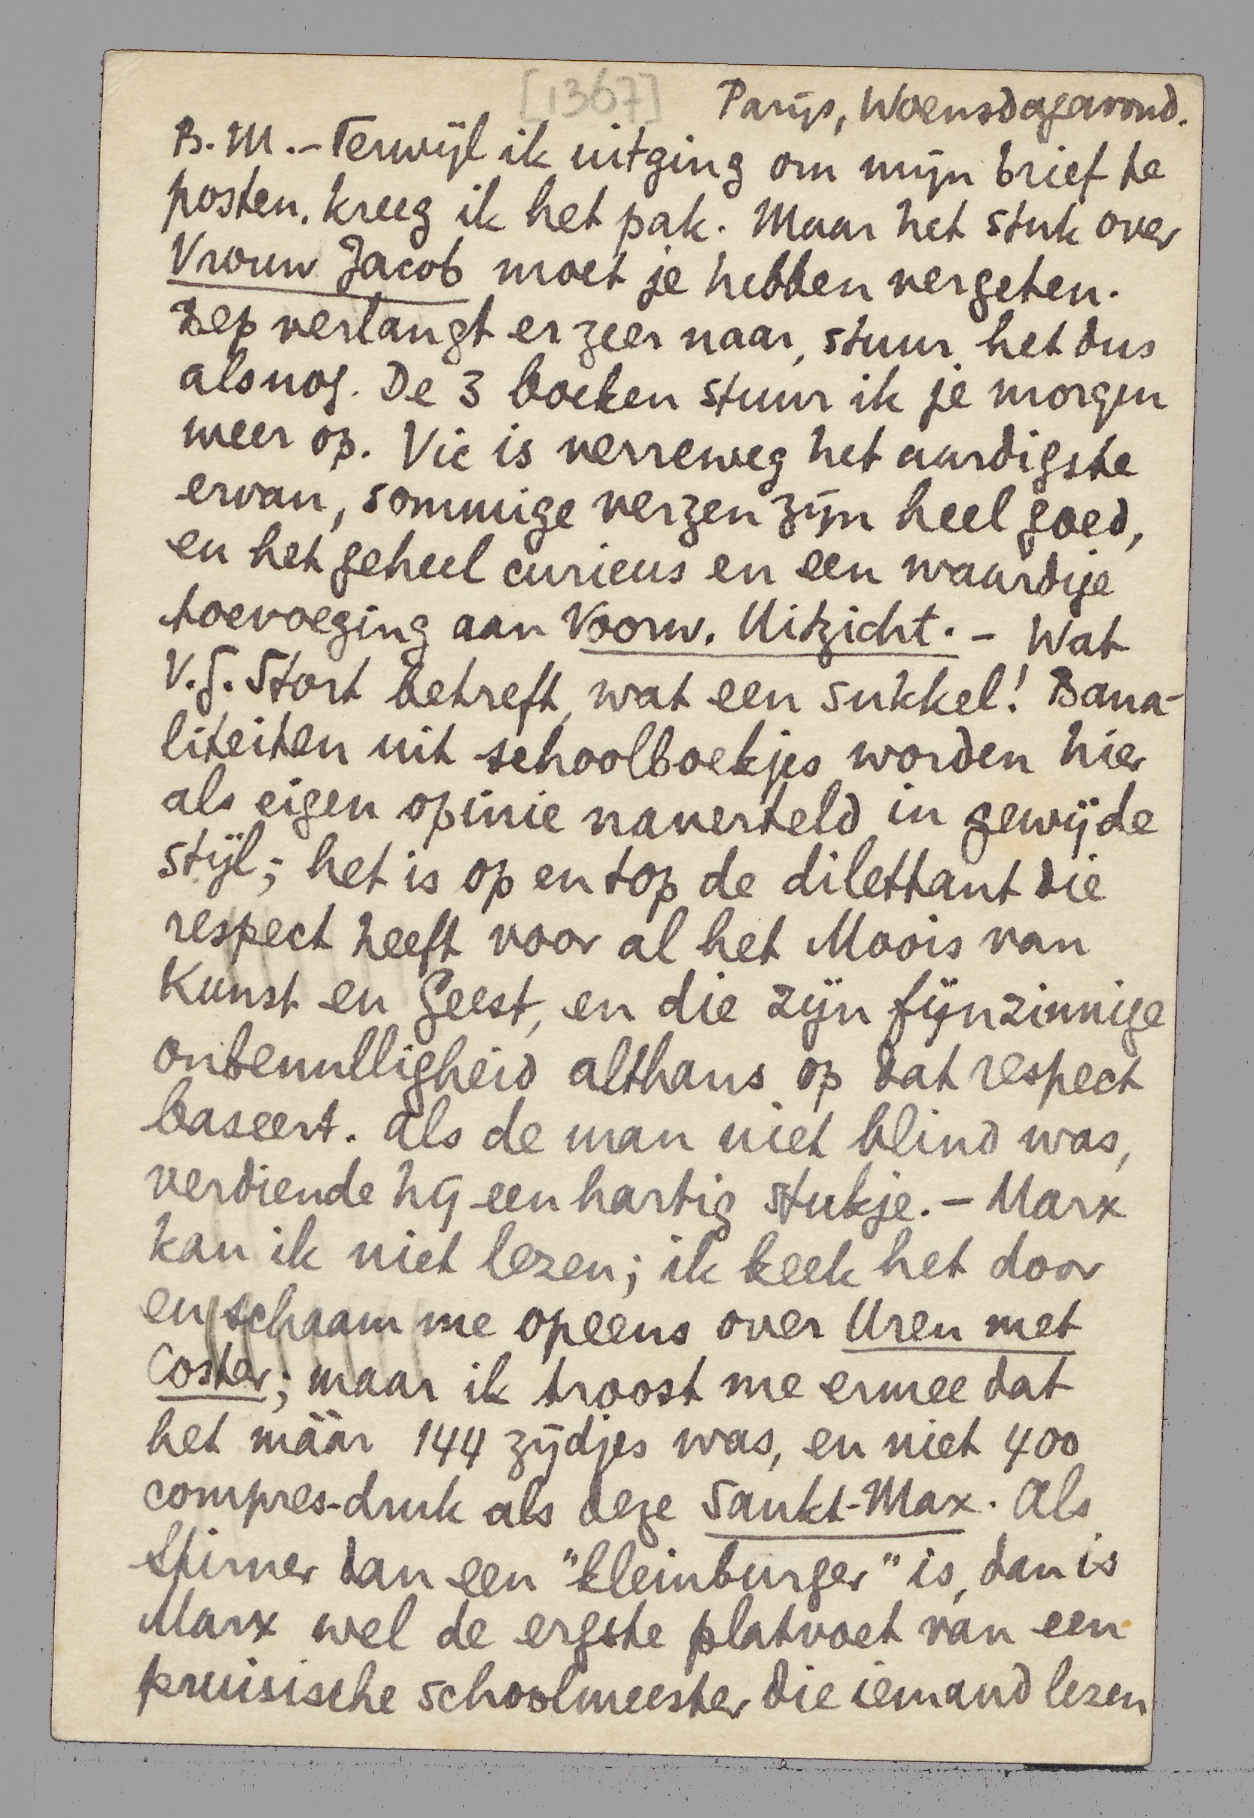 [1367]
Parijs, Woensdagavond.
B.M. - Terwijl ik uitging om mijn brief te
posten, kreeg ik het pak. Maar het stuk over
Vrouw Jacob moet je hebben vergeten.
Bep verlangt er zeer naar, stuur het dus
alsnog. De 3 boeken stuur ik je morgen
weer op. Vic is verreweg het aardigste
ervan, sommige verzen zijn heel goed,
en het geheel curieus en een waardige
toevoeging aan Voorw. Uitzicht. - Wat
V.G. Stort betreft, wat een sukkel! Bana-
liteiten uit schoolboekjes worden hier
als eigen opinie naverteld in gewijde
stijl; het is op en top de dilettant die
respect heeft voor al het Moois van
Kunst en Geest, en die zijn fijnzinnige
onbenulligheid althans op dat respect
baseert. Als de man niet blind was,
verdiende hij een hartig stukje. - Marx
kan ik niet lezen; ik keek het door
en schaam me opeens over Uren met
Coster; maar ik troost me ermee dat
het máár 144 zijdjes was, en niet 400
compres-druk als deze Sankt-Max. Als
Stirner dan een "kleinburger" is, dan is
Marx wel de ergste platvoet van een
pruisische schoolmeester die iemand lezen